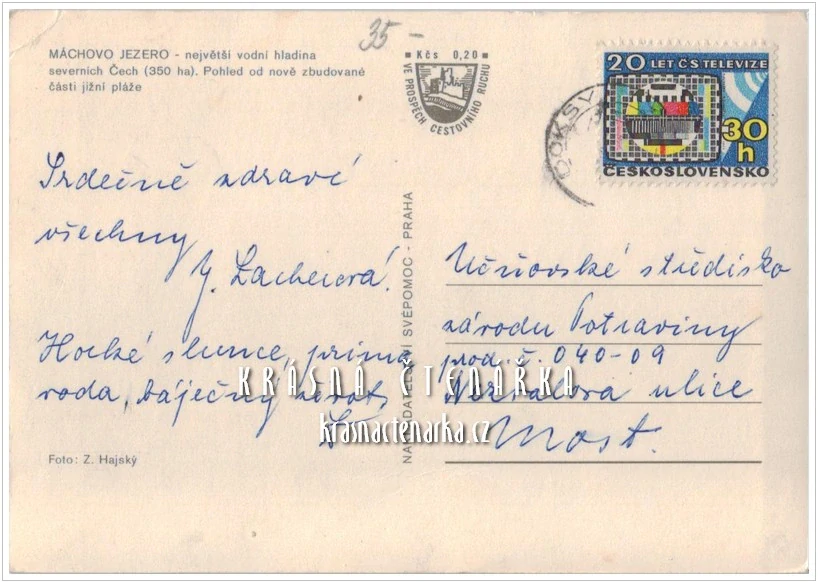 35-
MÁCHOVO JEZERO - největší vodní hladina
severních Čech (350 ha). Pohled od nově zbudované
části jižní pláže
Kčs 0,20
VE PROSPĚCH CESTOVNÍHO RUCHU
DOKSY
20 LET ČS TELEVIZE
30
h
ČESKOSLOVENSKO
Srdečně zdraví
všechny
Horké slunce, prima
voda, báječný život,
NAKLADATELSTVÍ SVÉPOMOC - PRAHA
Učňovské středisko
závodu Potraviny
prod. č. 040-09
ulice
Most.
KRÁSNÁ ČTENÁŘKA
krasnactenarka.cz
Foto: Z. Hajský